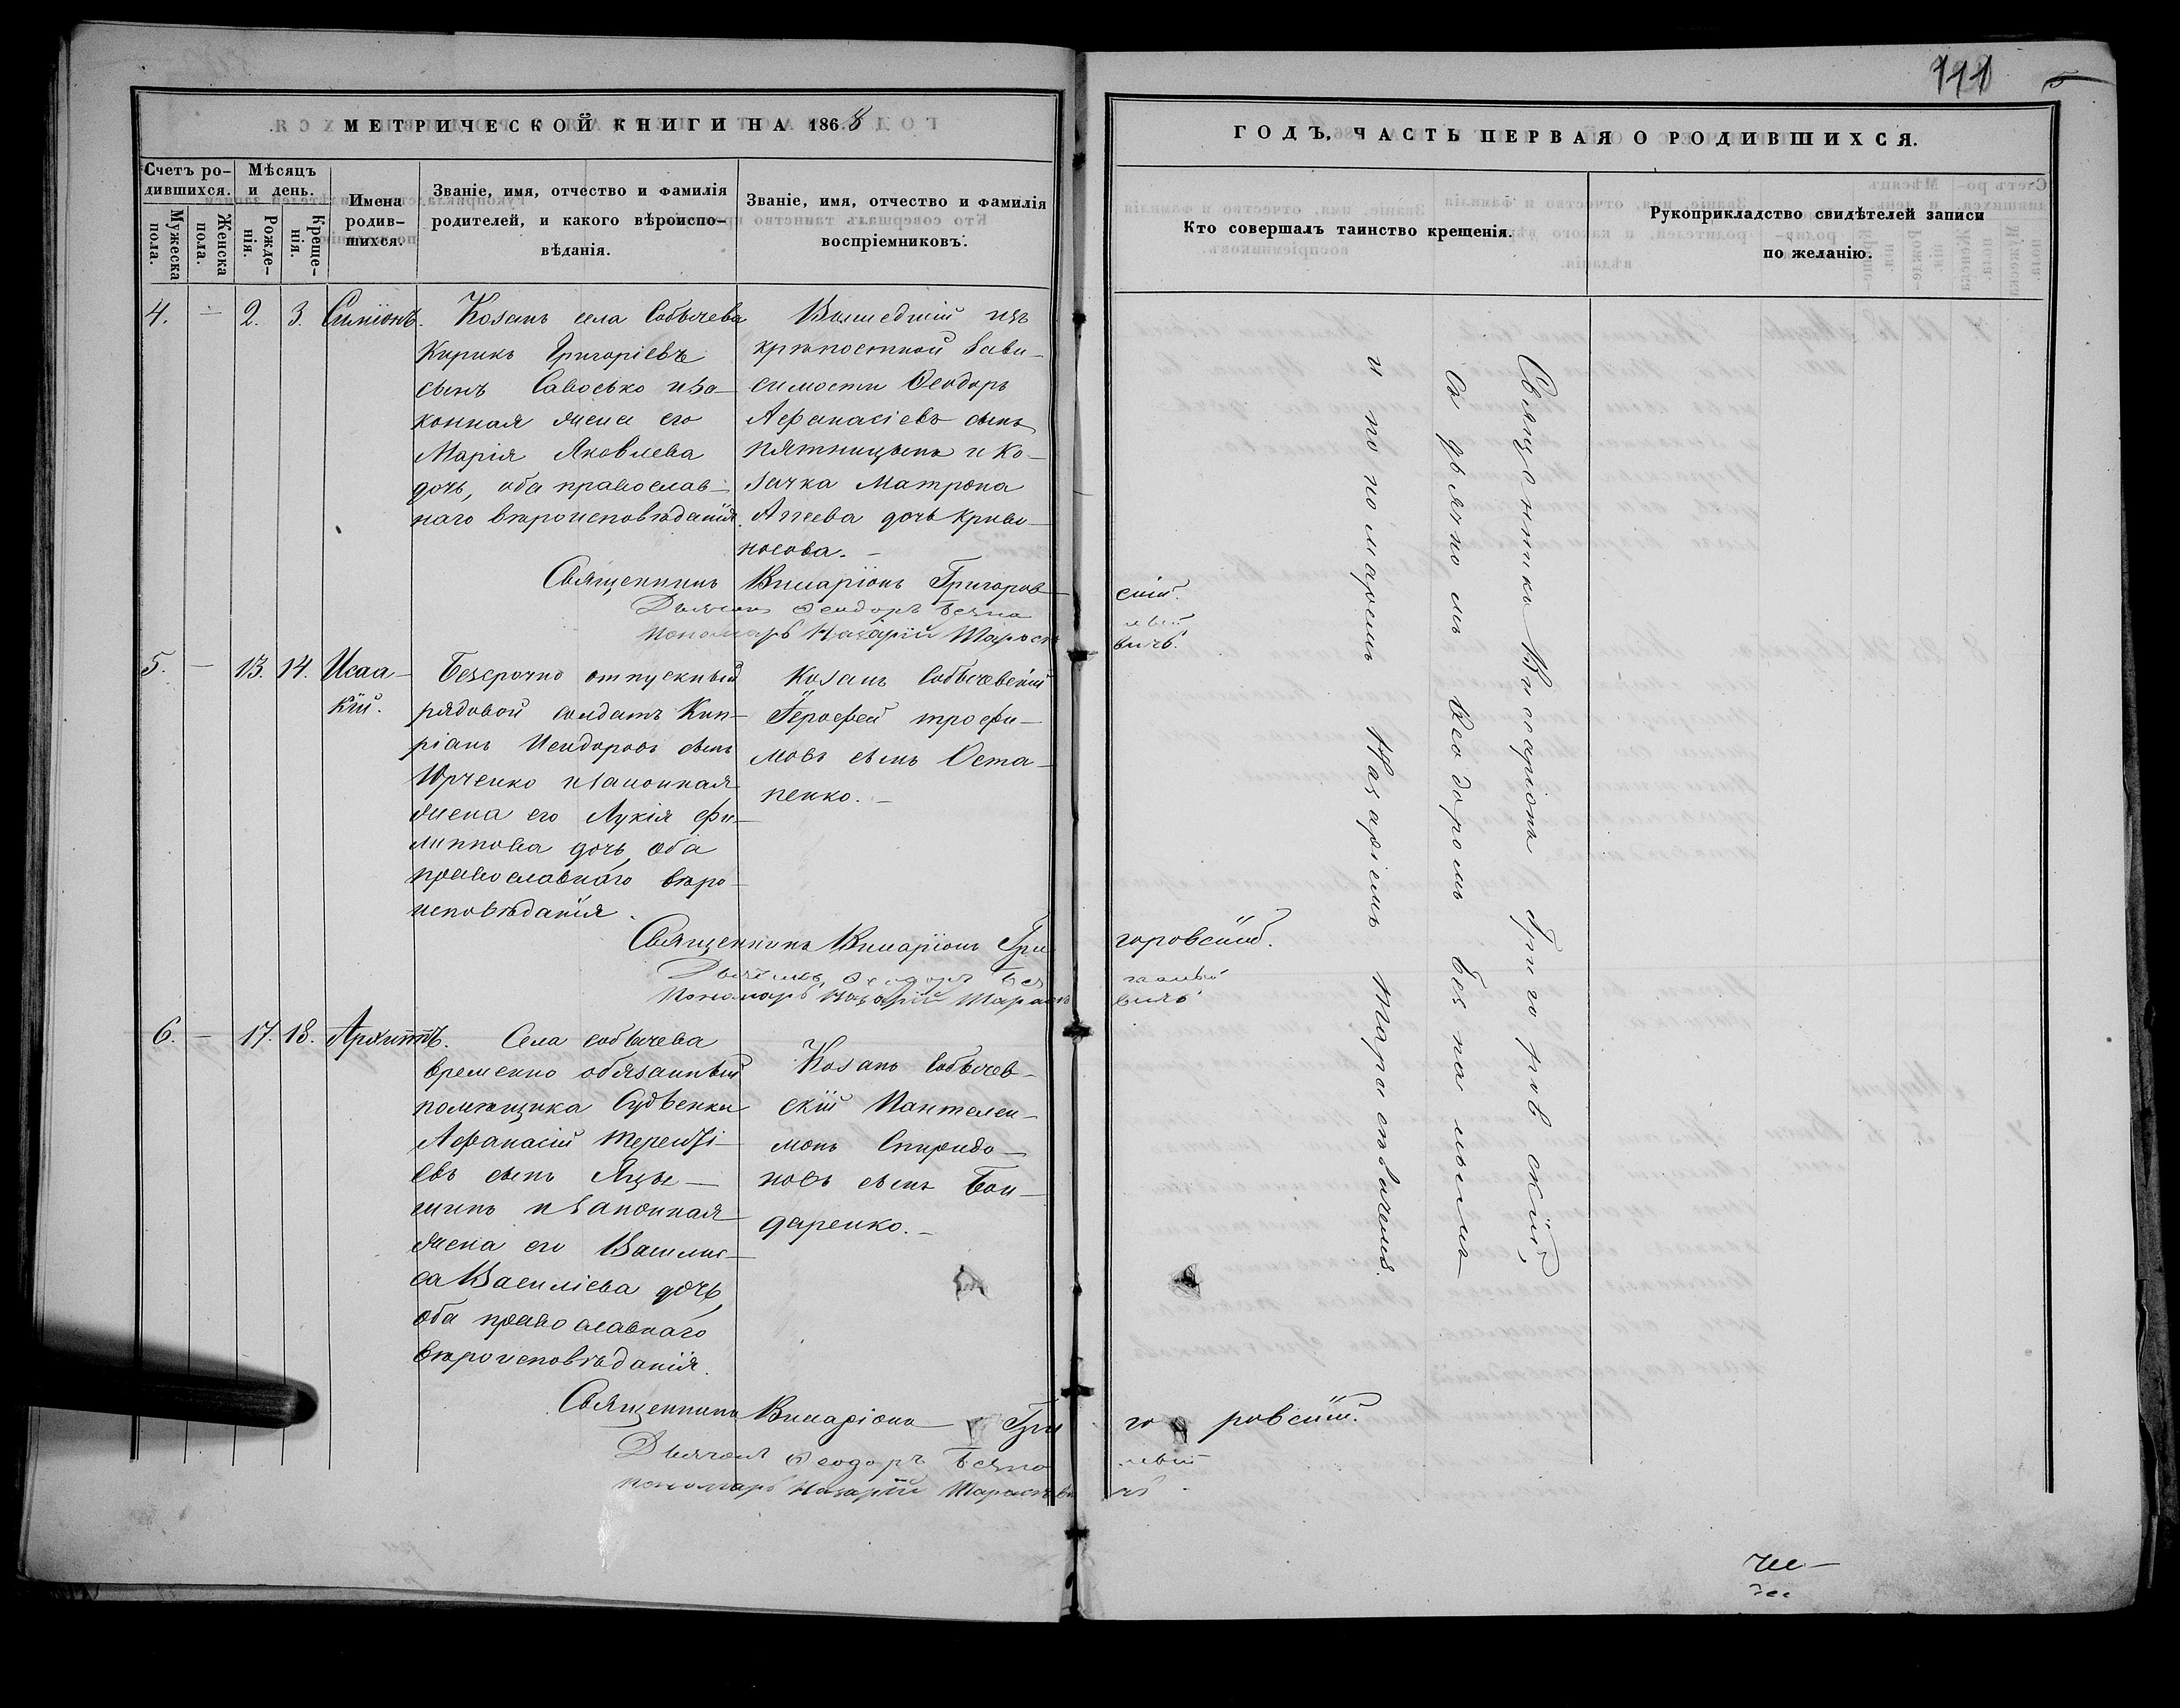 111
5
МЕТРИЧЕСКОЙ КНИГИ НА 1868
ГОДЪ, ЧАСТЬ ПЕРВАЯ О РОДИВШИХСЯ.
Счетъ ро-
дившихся.
Мужеска
пола.
Женска
пола.
Мѣсяцъ
и день.
Рожде-
нія.
Креще-
нія.
Имена
родив-
шихся.
Званіе, имя, отчество и фамилія
родителей, и какого вѣроиспо-
вѣданія.
Званіе, имя, отчество и фамилія
воспріемниковъ.
Кто совершалъ таинство крещенія.
Рукоприкладство свидѣтелей записи
по желанію.
4. — 2. 3. Симіонъ.
Козакъ села Собычева
Кирикъ Григоріевъ
сынъ Савосько иза-
конная жена его
Марія Яковлева
дочь, оба православ-
наго вѣроисповѣданія.
Вышедшій изъ
крѣпостной зави-
симости Ѳеодоръ
Аѳанасіевъ сынъ
Пятницынъ и Ко-
зачка Матрона
Аггеева дочь Криво-
носова. —
Священникъ Виссаріонъ Григоров-
скій.
Дьячокъ Ѳеодоръ Безпа
лый
Пономарь Назарій Тарасе
вичъ.
5. — 13. 14. Исаа-
кій.
Безсрочно отпускный
рядовой солдатъ Кип-
ріанъ Исидоровъ сынъ
Юрченко изаконная
жена его Лукія Фи-
липпова дочь, оба
православнаго вѣро-
исповѣданія.
Козакъ Собычевскій
Героѳей Трофи-
мовъ сынъ Оста-
пенко. —
Священникъ Виссаріонъ Гри
горовскій.
Дьячокъ Ѳеодоръ Без
палый
Пономарь Назарій Тарасе
вичъ
6. — 17. 18. Архиппъ.
Села Собычева
временно обязанный
помѣщика Судьенки
Аѳанасій Терентi-
евъ сынъ Яцы-
шинъ изаконная
жена его Василис-
са Василіева дочь,
оба православнаго
вѣроисповѣданія.
Козакъ Собычев-
скій Пантелеи-
монъ Спиридо-
новъ сынъ Бон-
даренко. —
Священникъ Виссаріонъ Гри
горовскій.
Дьячокъ Ѳеодоръ Безпа
лый
Пономарь Назарій Тарасеви
чъ
Священникъ Виссаріонъ Григоровскій,
Съ дьячкомъ Ѳеодоромъ Безпалымъ
и пономаремъ Назаріемъ Тарасевичемъ.